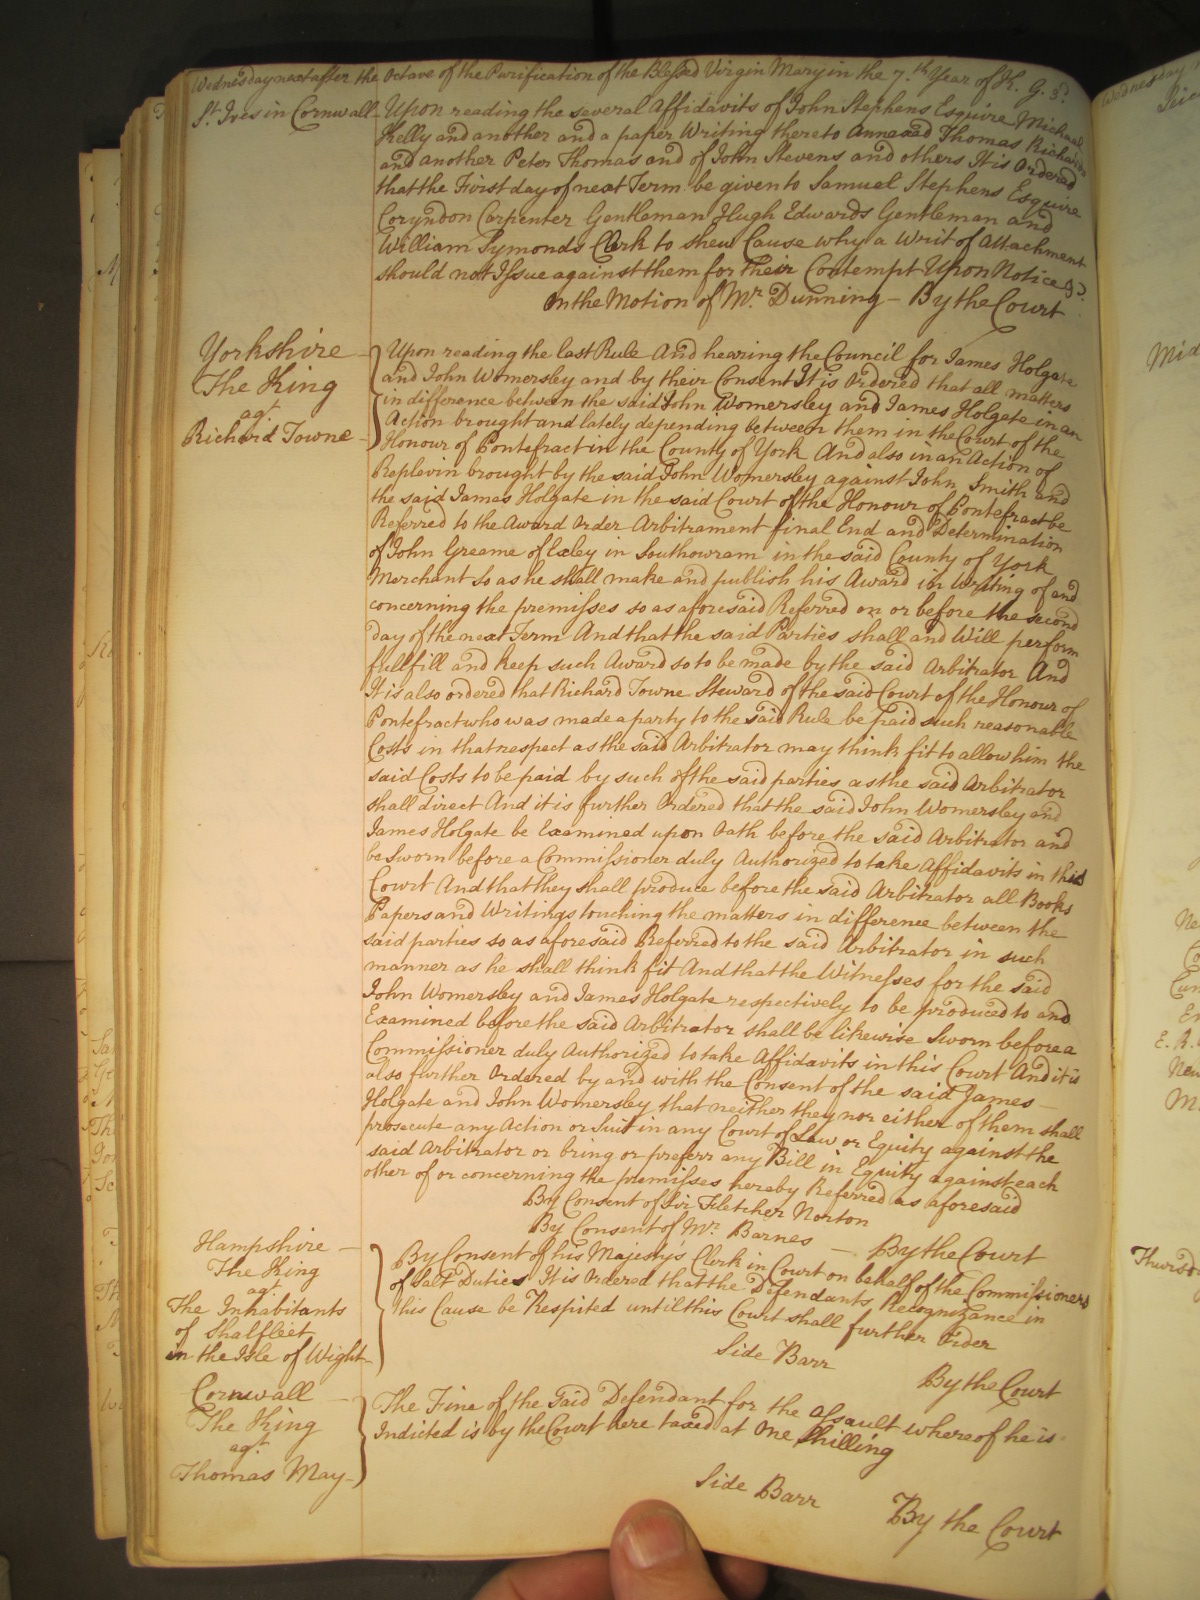 Wednesday next after the Octave of the Purification of the Blessed Virgin Mary in the 7.th Year of K. G. 3d.
St. Ives in Cornwall - Upon reading the several Affidavits of John Stephens Esquire Michael
Kelly and another and a paper Writing thereto annexed Thomas Richards
and another Peter Thomas and of John Stevens and others It is Ordered
that the First day of next Term be given to Samuel Stephens Esquire
Coryndon Carpenter Gentleman Hugh Edwards Gentleman and
William Symonds Clerk to shew Cause why a Writ of Attachment
should not Issue against them for their Contempt Upon Notice &c.
On the Motion of Mr. Dunning - By the Court
Yorkshire
The King
agt.
Richard Towne
Upon reading the last Rule And hearing the Council for James Holgate
and John Womersley and by their Consent It is Ordered that all matters
in difference between the said John Womersley and James Holgate in an
Action brought and lately depending between them in the Court of the
Honour of Pontefract in the County of York And also in an Action of
Replevin brought by the said John Womersley against John Smith and
the said James Holgate in the said Court of the Honour of Pontefract be
Referred to the Award Order Arbitrament final End and Determination
of John Greame of Exley in Southowram in the said County of York
Merchant so as he shall make and publish his Award in Writing of and
concerning the premisses so as aforesaid Referred on or before the second
day of the next Term And that the said Parties shall and Will perform
fullfill and keep such Award so to be made by the said Arbitrator And
It is also ordered that Richard Towne Steward of the said Court of the Honour of
Pontefract who was made a party to the said Rule be paid such reasonable
Costs in that respect as the said Arbitrator may think fit to allow him the
said Costs to be paid by such of the said parties as the said Arbitrator
shall direct And it is further Ordered that the said John Womersley and
James Holgate be Examined upon Oath before the said Arbitrator and
be Sworn before a Commissioner duly Authorized to take Affidavits in this
Court And that they shall produce before the said Arbitrator all Books
Papers and Writings touching the matters in difference between the
said parties so as aforesaid Referred to the said Arbitrator in such
manner as he shall think fit And that the Witnesses for the said
John Womersley and James Holgate respectively to be produced to and
Examined before the said Arbitrator shall be likewise Sworn before a
Commissioner duly Authorized to take Affidavits in this Court And it is
also further Ordered by and with the Consent of the said James -
Holgate and John Womersley that neither they nor either of them shall
prosecute any Action or Suit in any Court of Law or Equity against the
said Arbitrator or bring or preferr any Bill in Equity against each
other of or concerning the premisses hereby Referred as aforesaid
By Consent of Sir Fletcher Norton
By Consent of Mr. Barnes - By the Court
Hampshire
The King
agt.
The Inhabitants
of Shalfleet
in the Isle of Wight
By Consent of his Majesty's Clerk in Court on behalf of the Commissioners
of Salt Duties It is Ordered that the Defendants Recognizance in
this Cause be Respited until this Court shall further Order
Side Barr
By the Court
Cornwall
The King
agt.
Thomas May
The Fine of the said Defendant for the Assault whereof he is
Indicted is by the Court here taxed at One Shilling
Side Barr
By the Court